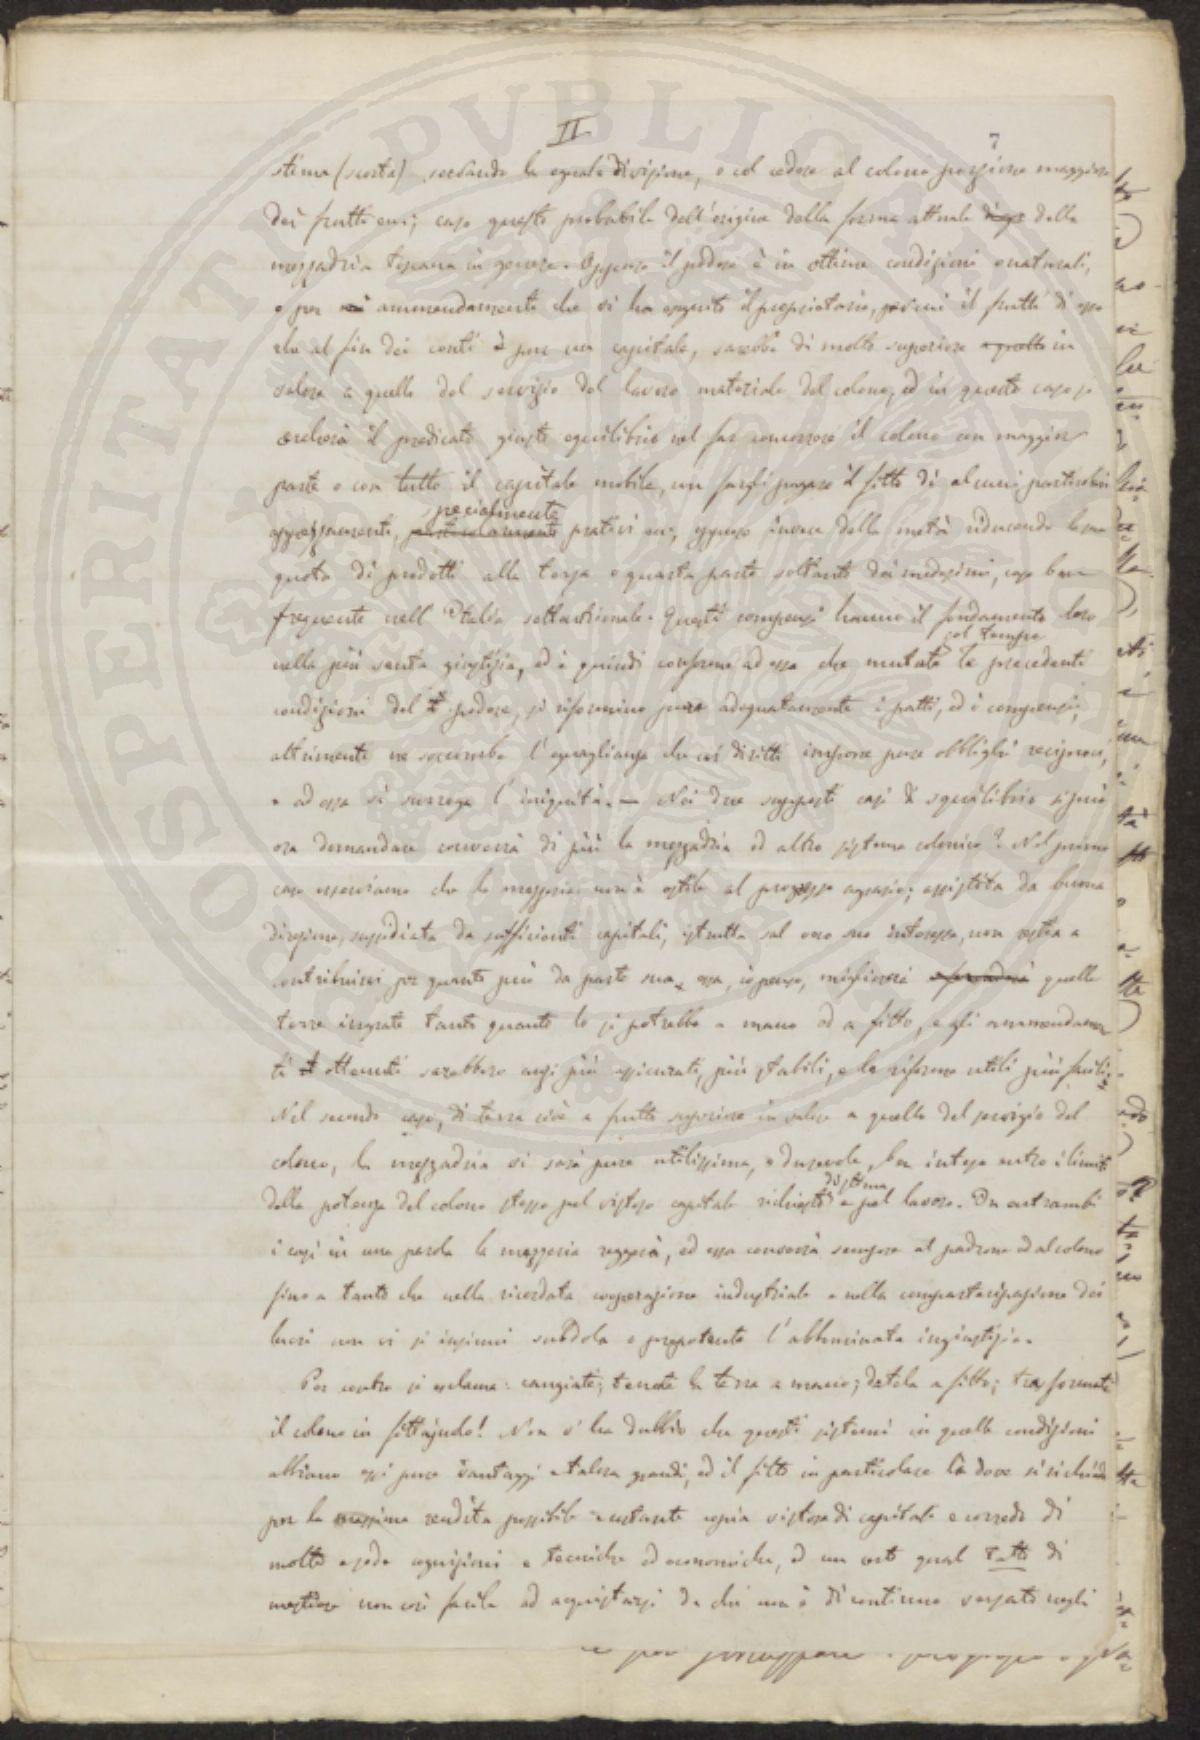 II
7
stima (scorta) secondo la eguale divisione, o col cedere al colono porzione maggiore
dei frutti ecc; caso questo probabile dell'origine della forma attuale della
mezzadria toscana in genere. Oppure il podere è in ottime condizioni naturali,
o per ammendamenti che vi ha eseguito il proprietario, per cui il frutto di esso
che al fin dei conti è pur un capitale, sarebbe di molto superiore in
valore a quello del servizio del lavoro materiale del colono, ed in questo caso si
il predicato giusto equilibrio nel far concorrere il colono con maggior
parte o con tutto il capitale mobile, un farsi pagare il fitto di alcuni particolari
appezzamenti, specialmente prativi ecc, oppure invece della metà riducendo la sua
quota di prodotti alla terza o quarta parte soltanto dei medesimi, caso ben
frequente nell'Italia settentrionale. Questi compensi hanno il fondamento loro
nella più santa giustizia, ed è quindi conforme ad essa che mutate col tempo le precedenti
condizioni del podere, si riformino pure adeguatamente i patti, ed i compensi,
altrimenti ne soccombe l'eguaglianza che coi diritti impone pure obblighi reciproci,
e ad essa si surroga l'iniquità. — Nei due supposti casi di squilibrio si può
ora domandare converrà di più la mezzadria od altro sistema colonico? Nel primo
caso osserviamo che la mezzeria non è ostile al progresso agrario; assistita da buona
direzione, sussidiata da sufficienti capitali, istrutta sul vero suo interesse, non restia a
contribuirvi per quanto può da parte sua, essa, io penso, migliorerà quelle
terre ingrate tanto quanto lo si potrebbe a mano od a fitto, e gli ammendamen
ti ottenuti sarebbero anzi più assicurati, più stabili, e le riforme utili più facili.
Nel secondo caso, di terra cioè a frutto superiore in valore a quello del servizio del
colono, la mezzadria vi sarà pure utilissima, e durevole, ben inteso entro i limiti
della potenza del colono stesso pel vistoso capitale richiesto di stima e pel lavoro. In entrambi
i casi in una parola la mezzeria reggerà, ed essa converrà sempre al padrone ed al colono
fino a tanto che nella ricordata cooperazione industriale e nella compartecipazione dei
lucri non vi si insinui subdola o prepotente l'abbominata ingiustizia.
Per contro si esclama: cangiate; tenete la terra a mano; datela a fitto; trasformate
il colono in fittajuolo! Non v'ha dubbio che questi sistemi in quelle condizioni
abbiano essi pure vantaggi e talora grandi, ed il fitto in particolare là dove si richiede
per la massima rendita possibile costante copia vistosa di capitale e corredo di
molte e sode cognizioni e tecniche ed economiche, ed un certo qual tatto di
mestiere non così facile ad acquistarsi da chi non è di continuo versato negli